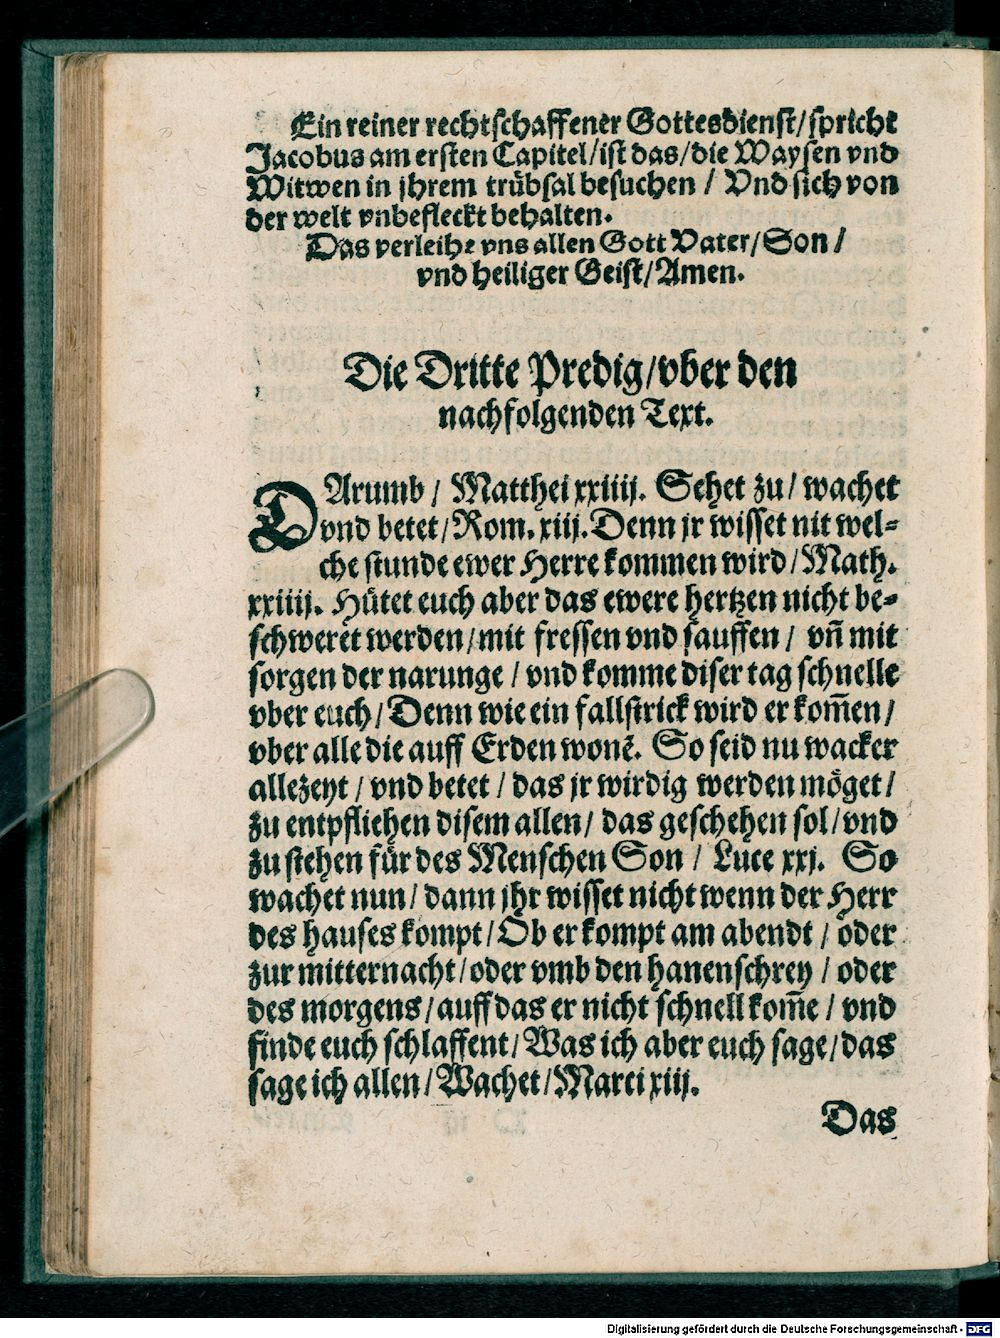 Ein reiner rechtschaffener Gottesdienst/spricht
Jacobus am ersten Capitel/ist das/die Waysen vnd
Witwen in jhrem trübsal besuchen / Vnd sich von
der welt vnbefleckt behalten.
Das verleihe vns allen Gott Vater/Son /
vnd heiliger Geist/Amen.
Die Dritte Predig/vber den
nachfolgenden Text.
DArumb / Matthei xxiiij. Sehet zu/ wachet
vnd betet/Rom. xiij. Denn jr wisset nit wel-
che stunde ewer Herre kommen wird/Math.
xxiiij. Hütet euch aber das ewere hertzen nicht be-
schweret werden/mit fressen vnd sauffen / vñ mit
sorgen der narunge / vnd komme diser tag schnelle
vber euch/Denn wie ein fallstrick wird er kom̃en/
vber alle die auff Erden wonẽ. So seid nu wacker
allezeyt / vnd betet / das jr wirdig werden möget/
zu entpfliehen disem allen/ das geschehen sol/vnd
zu stehen für des Menschen Son / Luce xxj. So
wachet nun/ dann jhr wisset nicht wenn der Herr
des hauses kompt/Ob er kompt am abendt / oder
zur mitternacht/oder vmb den hanenschrey / oder
des morgens/auff das er nicht schnell kom̃e / vnd
finde euch schlaffent/Was ich aber euch sage/das
sage ich allen/Wachet/Marci xiij.
Das
Digitalisierung gefördert durch die Deutsche Forschungsgemeinschaft - DFG